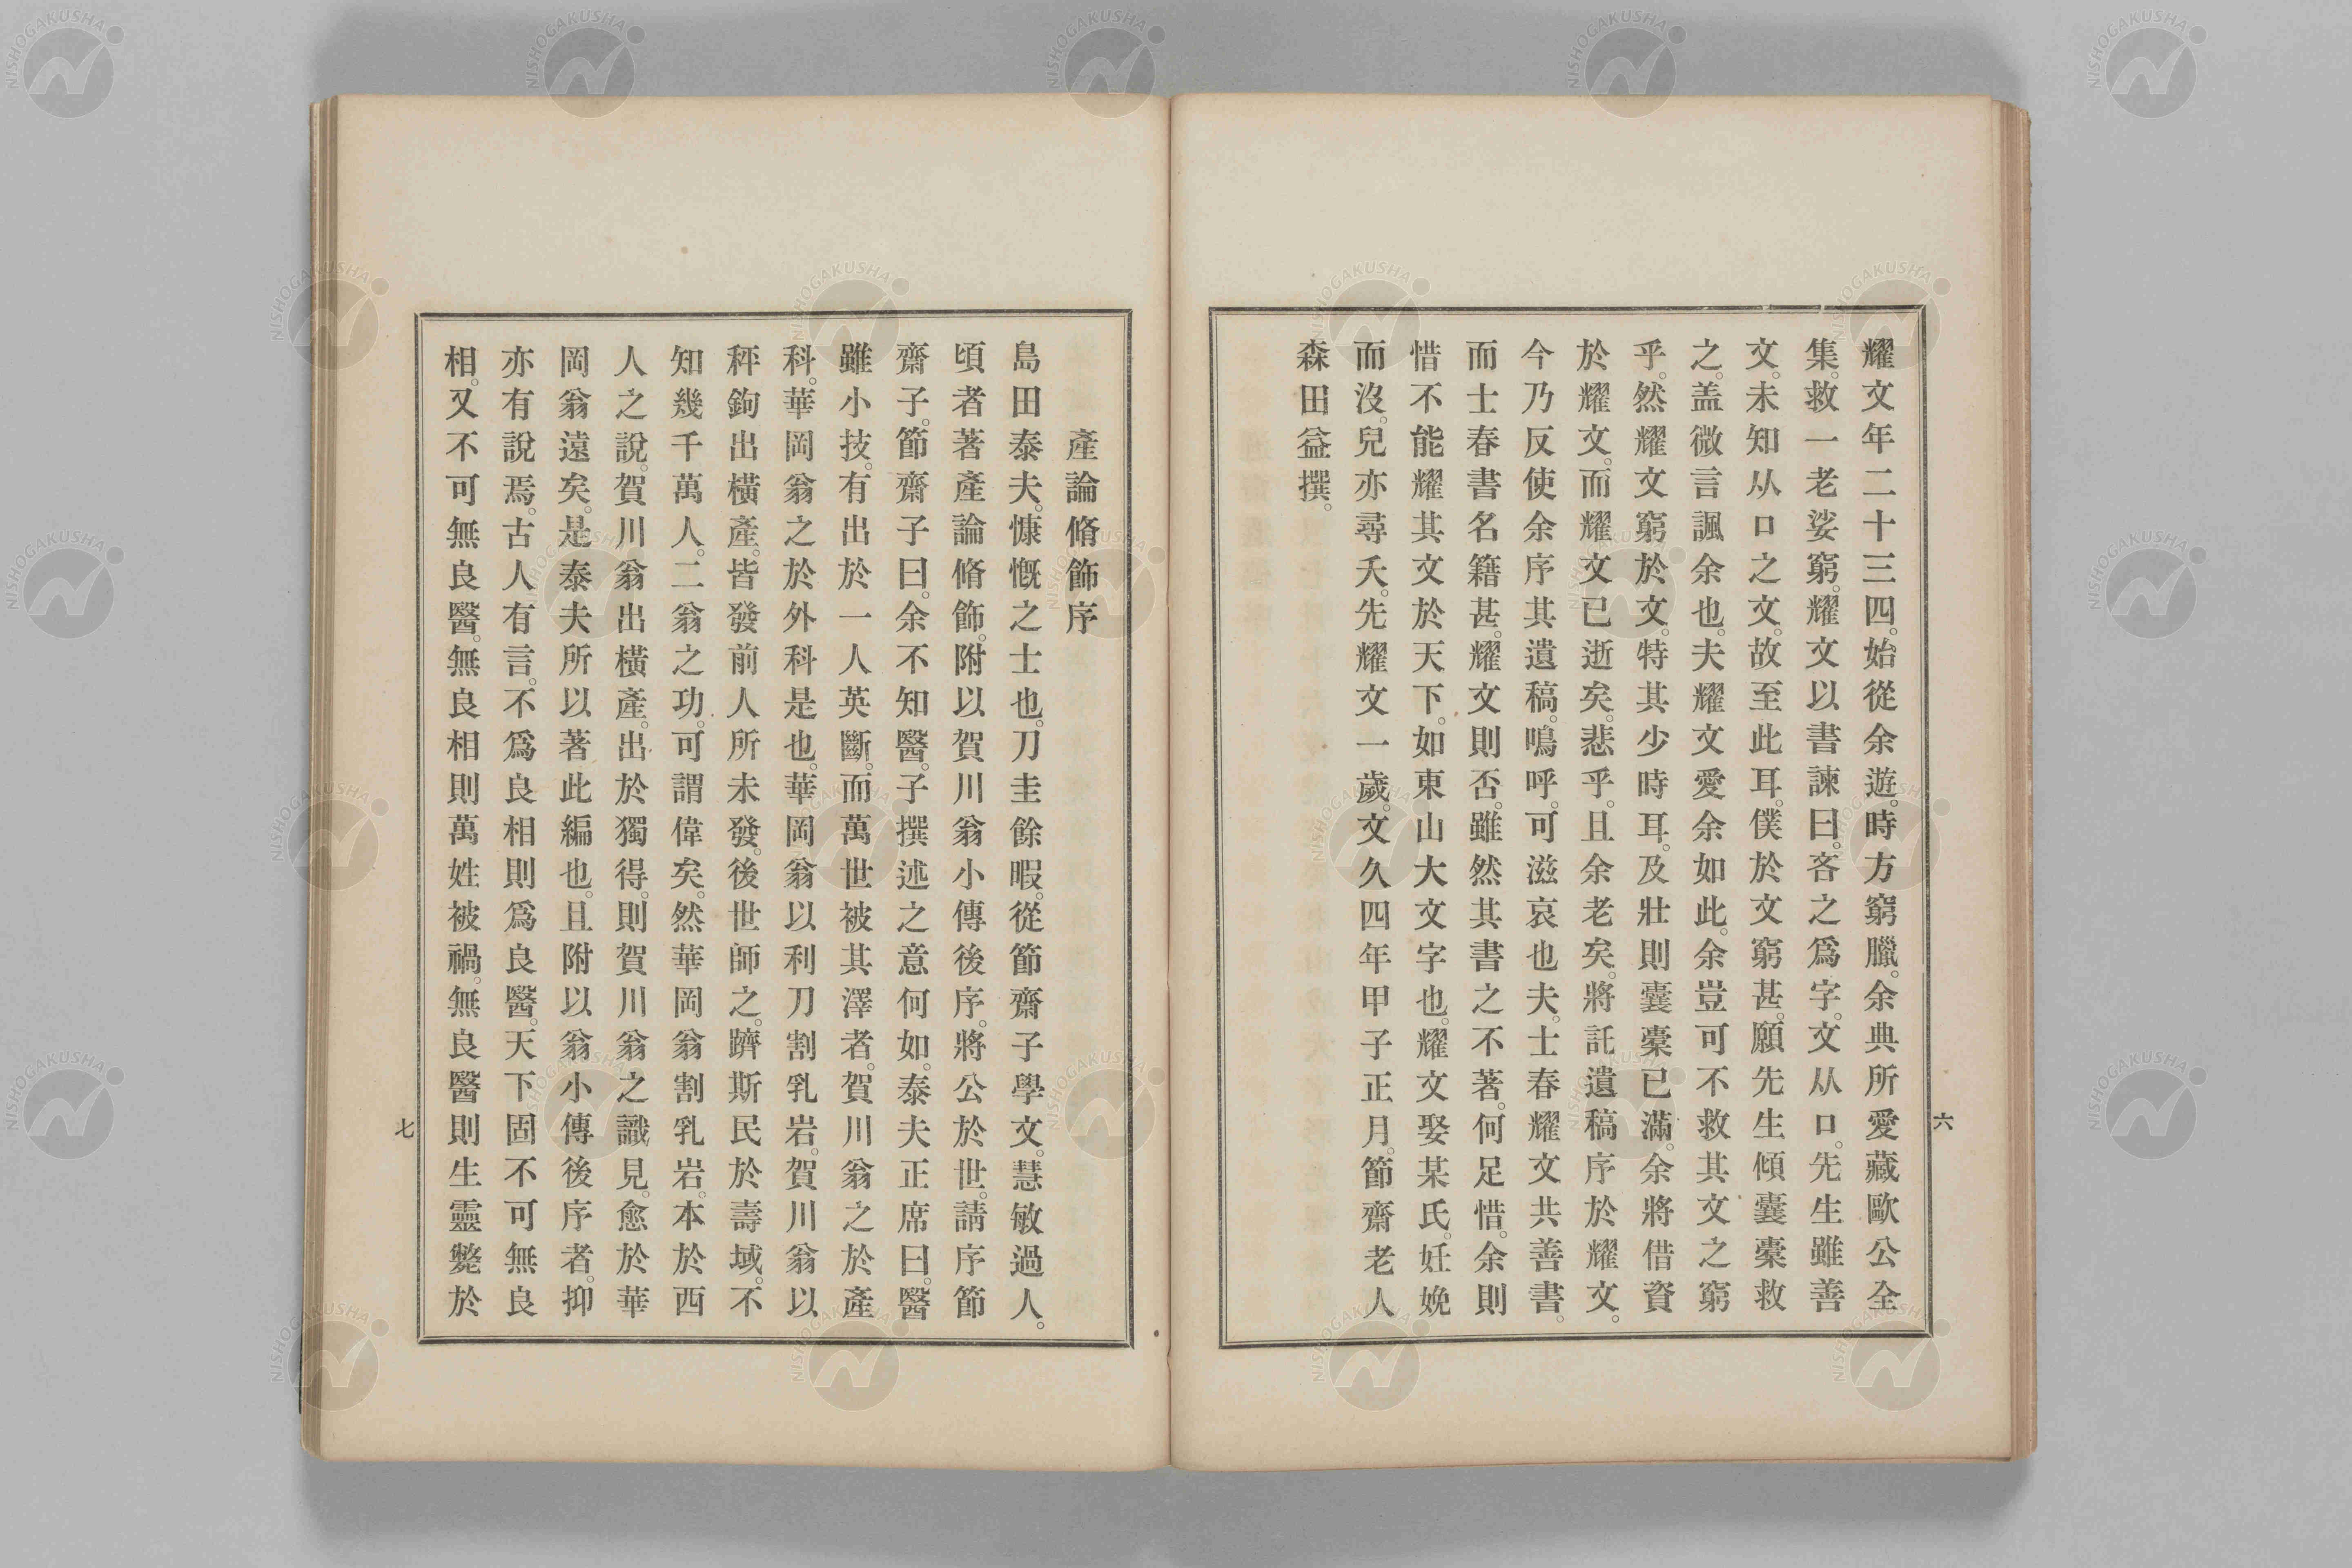 耀文年二十三四。始從余遊。時方窮臘。余典所愛藏歐公全
集。救一老娑窮。耀文以書諫曰。吝之爲字。文从口。先生雖善
文。未知从口之文。故至此耳。僕於文窮甚。願先生傾囊槖救
之。盖微言諷余也。夫耀文愛余如此。余豈可不救其文之窮
乎。然耀文窮於文。特其少時耳。及壯則囊槖已滿。余將借資
於耀文。而耀文已逝矣。悲乎。且余老矣。將託遺稿序於耀文。
今乃反使余序其遺稿。嗚呼。可滋哀也夫。士春耀文共善書。
而士春書名籍甚。耀文則否。雖然其書之不著。何足惜。余則
惜不能耀其文於天下。如東山大文字也。耀文娶某氏。妊娩
而沒。兒亦尋夭。先耀文一歲。文久四年甲子正月。節齋老人
森田益撰。
六
產論脩飾序
島田泰夫。慷慨之士也。刀圭餘暇。從節齋子學文。慧敏過人。
頃者著產論脩飾。附以賀川翁小傳後序。將公於世。請序節
齋子。節齋子曰。余不知醫。子撰述之意何如。泰夫正席曰。醫
雖小技。有出於一人英斷。而萬世被其澤者。賀川翁之於產
科。華岡翁之於外科是也。華岡翁以利刀割乳岩。賀川翁以
秤鉤出橫產。皆發前人所未發。後世師之。躋斯民於壽域。不
知幾千萬人。二翁之功。可謂偉矣。然華岡翁割乳岩。本於西
人之說。賀川翁出橫產。出於獨得。則賀川翁之識見。愈於華
岡翁遠矣。是泰夫所以著此編也。且附以翁小傳後序者。抑
亦有說焉。古人有言。不爲良相則爲良醫。天下固不可無良
相。又不可無良醫。無良相則萬姓被禍。無良醫則生靈斃於
七